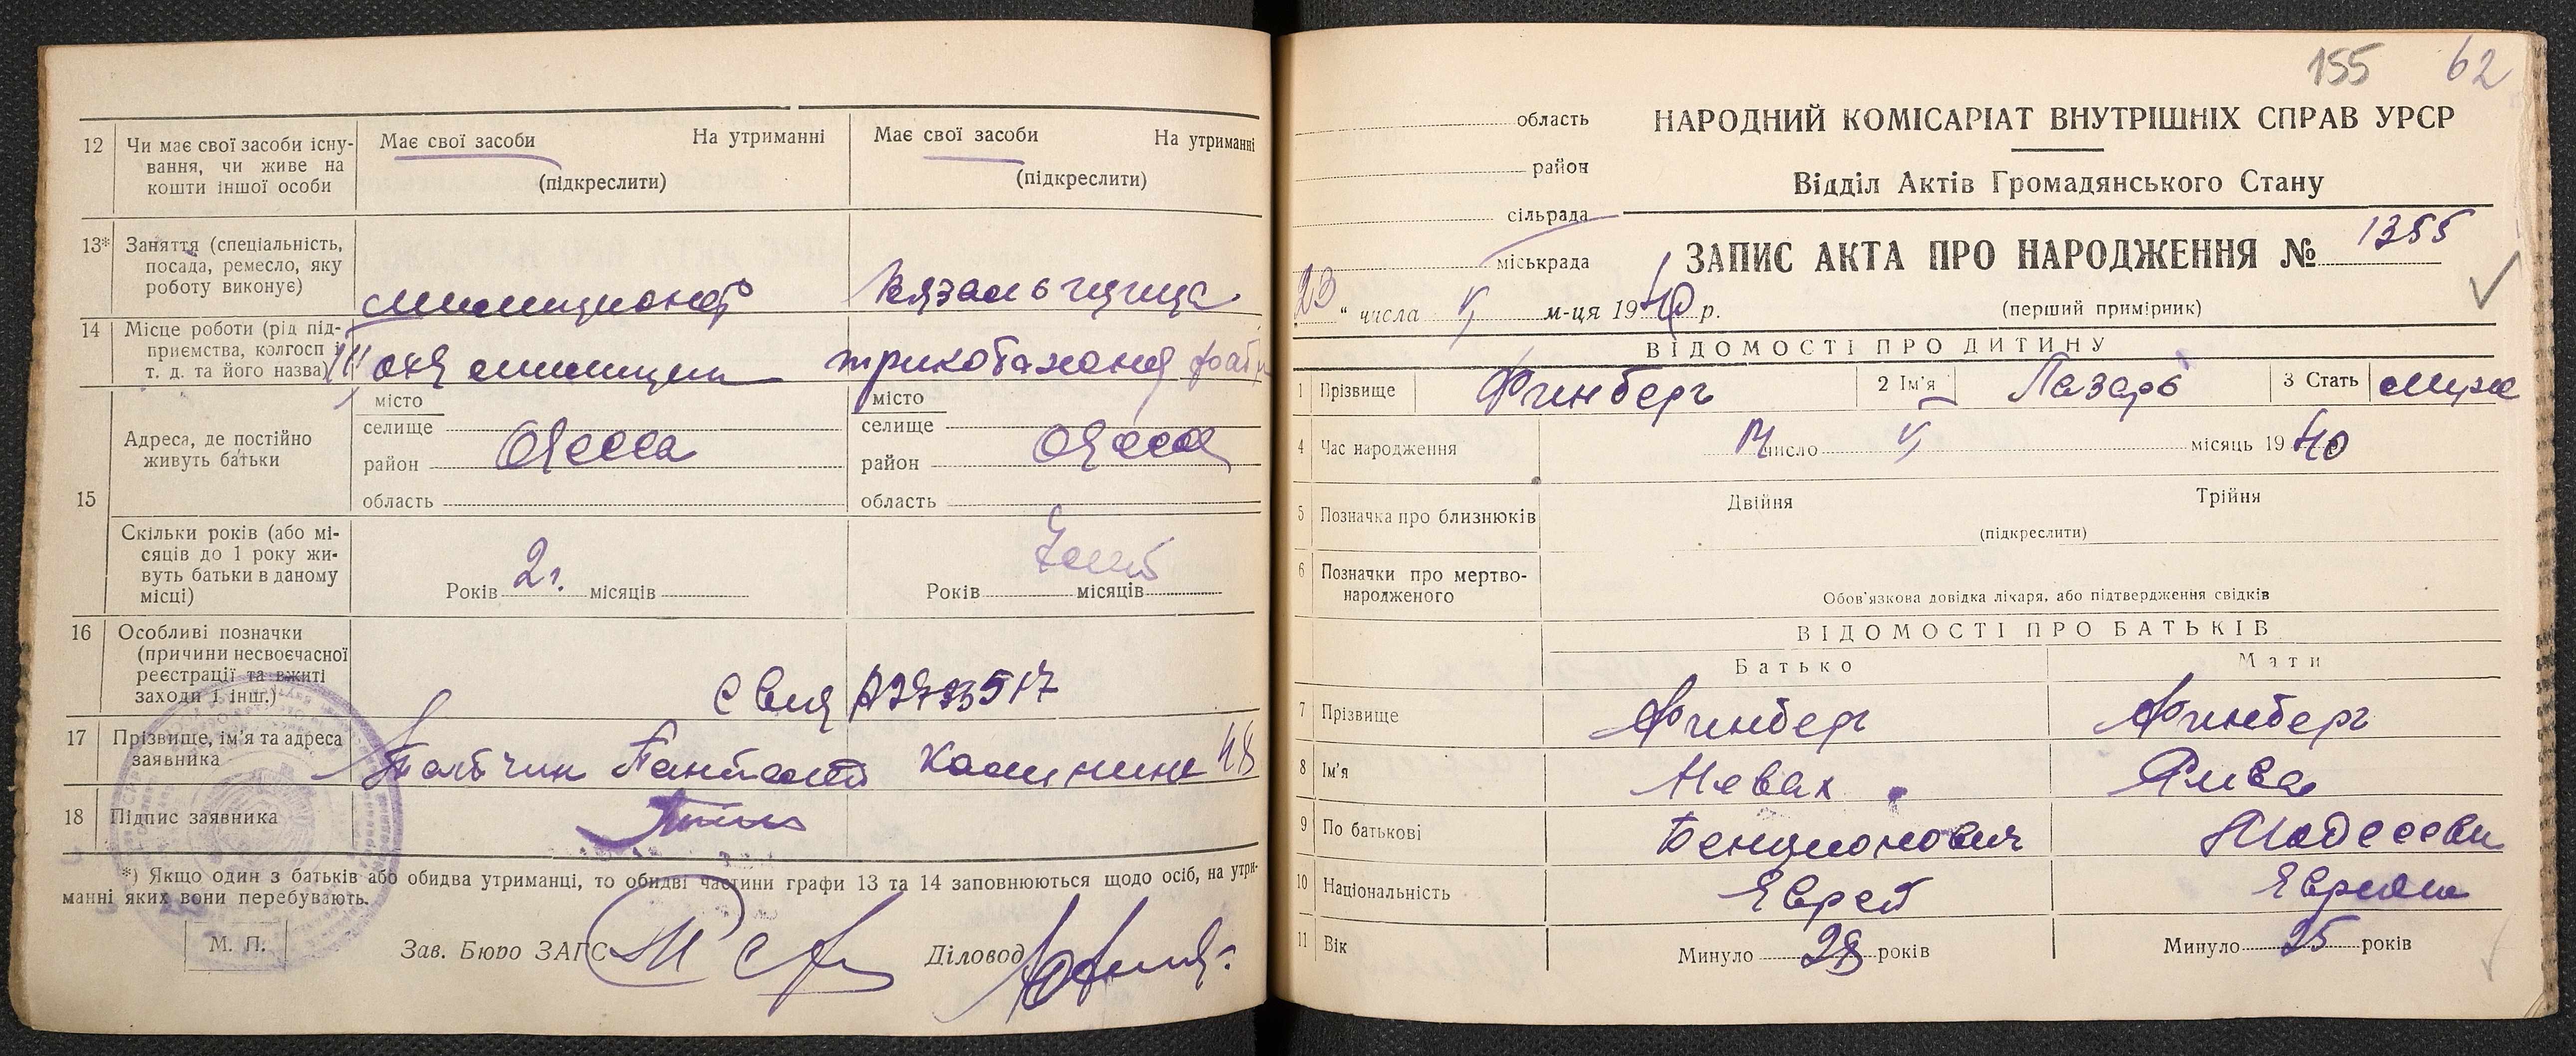 12 Чи має свої засоби існу-
вання, чи живе на
кошти іншої особи
Має свої засоби На утриманні
(підкреслити)
Має свої засоби На утриманні
(підкреслити)
13* Заняття (спеціальність,
посада, ремесло, яку
роботу виконує)
милиционер
Вязальщица
14 Місце роботи (рід під-
приємства, колгосп і
т. д. та його назва)
милиции
трикотажная
15 Адреса, де постійно
живуть батьки
місто
селище
Одесса
район
область
місто
селище
Одесса
район
область
Скільки років (або мі-
сяців до 1 року жи-
вуть батьки в даному
місці)
Років 2 г. місяців
Років місяців
16 Особливі позначки
(причини несвоєчасної
реєстрації та вжиті
заходи і інш.)
17 Прізвище, ім'я та адреса
заявника
48
18 Підпис заявника
*) Якщо один з батьків або обидва утриманці, то обидві частини графи 13 та 14 заповнюються щодо осіб, на утри-
манні яких вони перебувають.
М. П.
Зав. Бюро ЗАГС Діловод
155 62
область
район
сільрада
міськрада
НАРОДНИЙ КОМІСАРІАТ ВНУТРІШНІХ СПРАВ УРСР
Відділ Актів Громадянського Стану
ЗАПИС АКТА ПРО НАРОДЖЕННЯ № 1355
23 " числа V м-ця 1940 р. (перший примірник)
ВІДОМОСТІ ПРО ДИТИНУ
1 Прізвище Финберг 2 Ім'я Лазарь 3 Стать муж
4 Час народження число V місяць 1940
5 Позначка про близнюків Двійня Трійня
(підкреслити)
6 Позначки про мертво-
народженого
Обов'язкова довідка лікаря, або підтвердження свідків
ВІДОМОСТІ ПРО БАТЬКІВ
Батько Мати
7 Прізвище Финберг Финберг
8 Ім'я Невах
9 По батькові Бенционович
10 Національність Еврей Еврейка
11 Вік Минуло 28 років Минуло 25 років